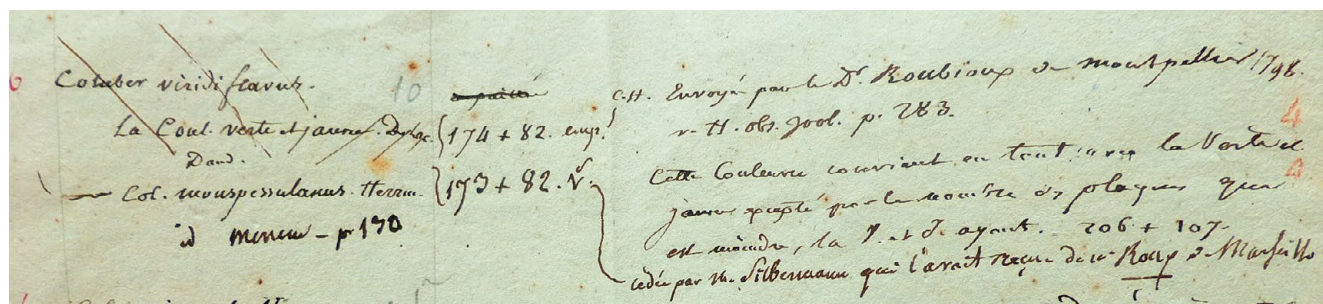 Coluber viridiflavus. 10
La Coul. verte et jaune. Daud.
Col. monspessulanus. Herm.
id merrem - p 130
174 + 82. emp.
173 + 82. V.
C.H. Envoyé par le Dr. Roubioux de montpellier 1798.
v. H. obs. zool. p. 283.
Cette Couleuvre convient en tout avec la Verte et
jaune excepté par le nombre des plaques qui
est moindre, la V. et J. ayant. 206 + 107.
cédée par M. Silbermann qui l'avait reçue de Mr Roux de Marseille
4
4